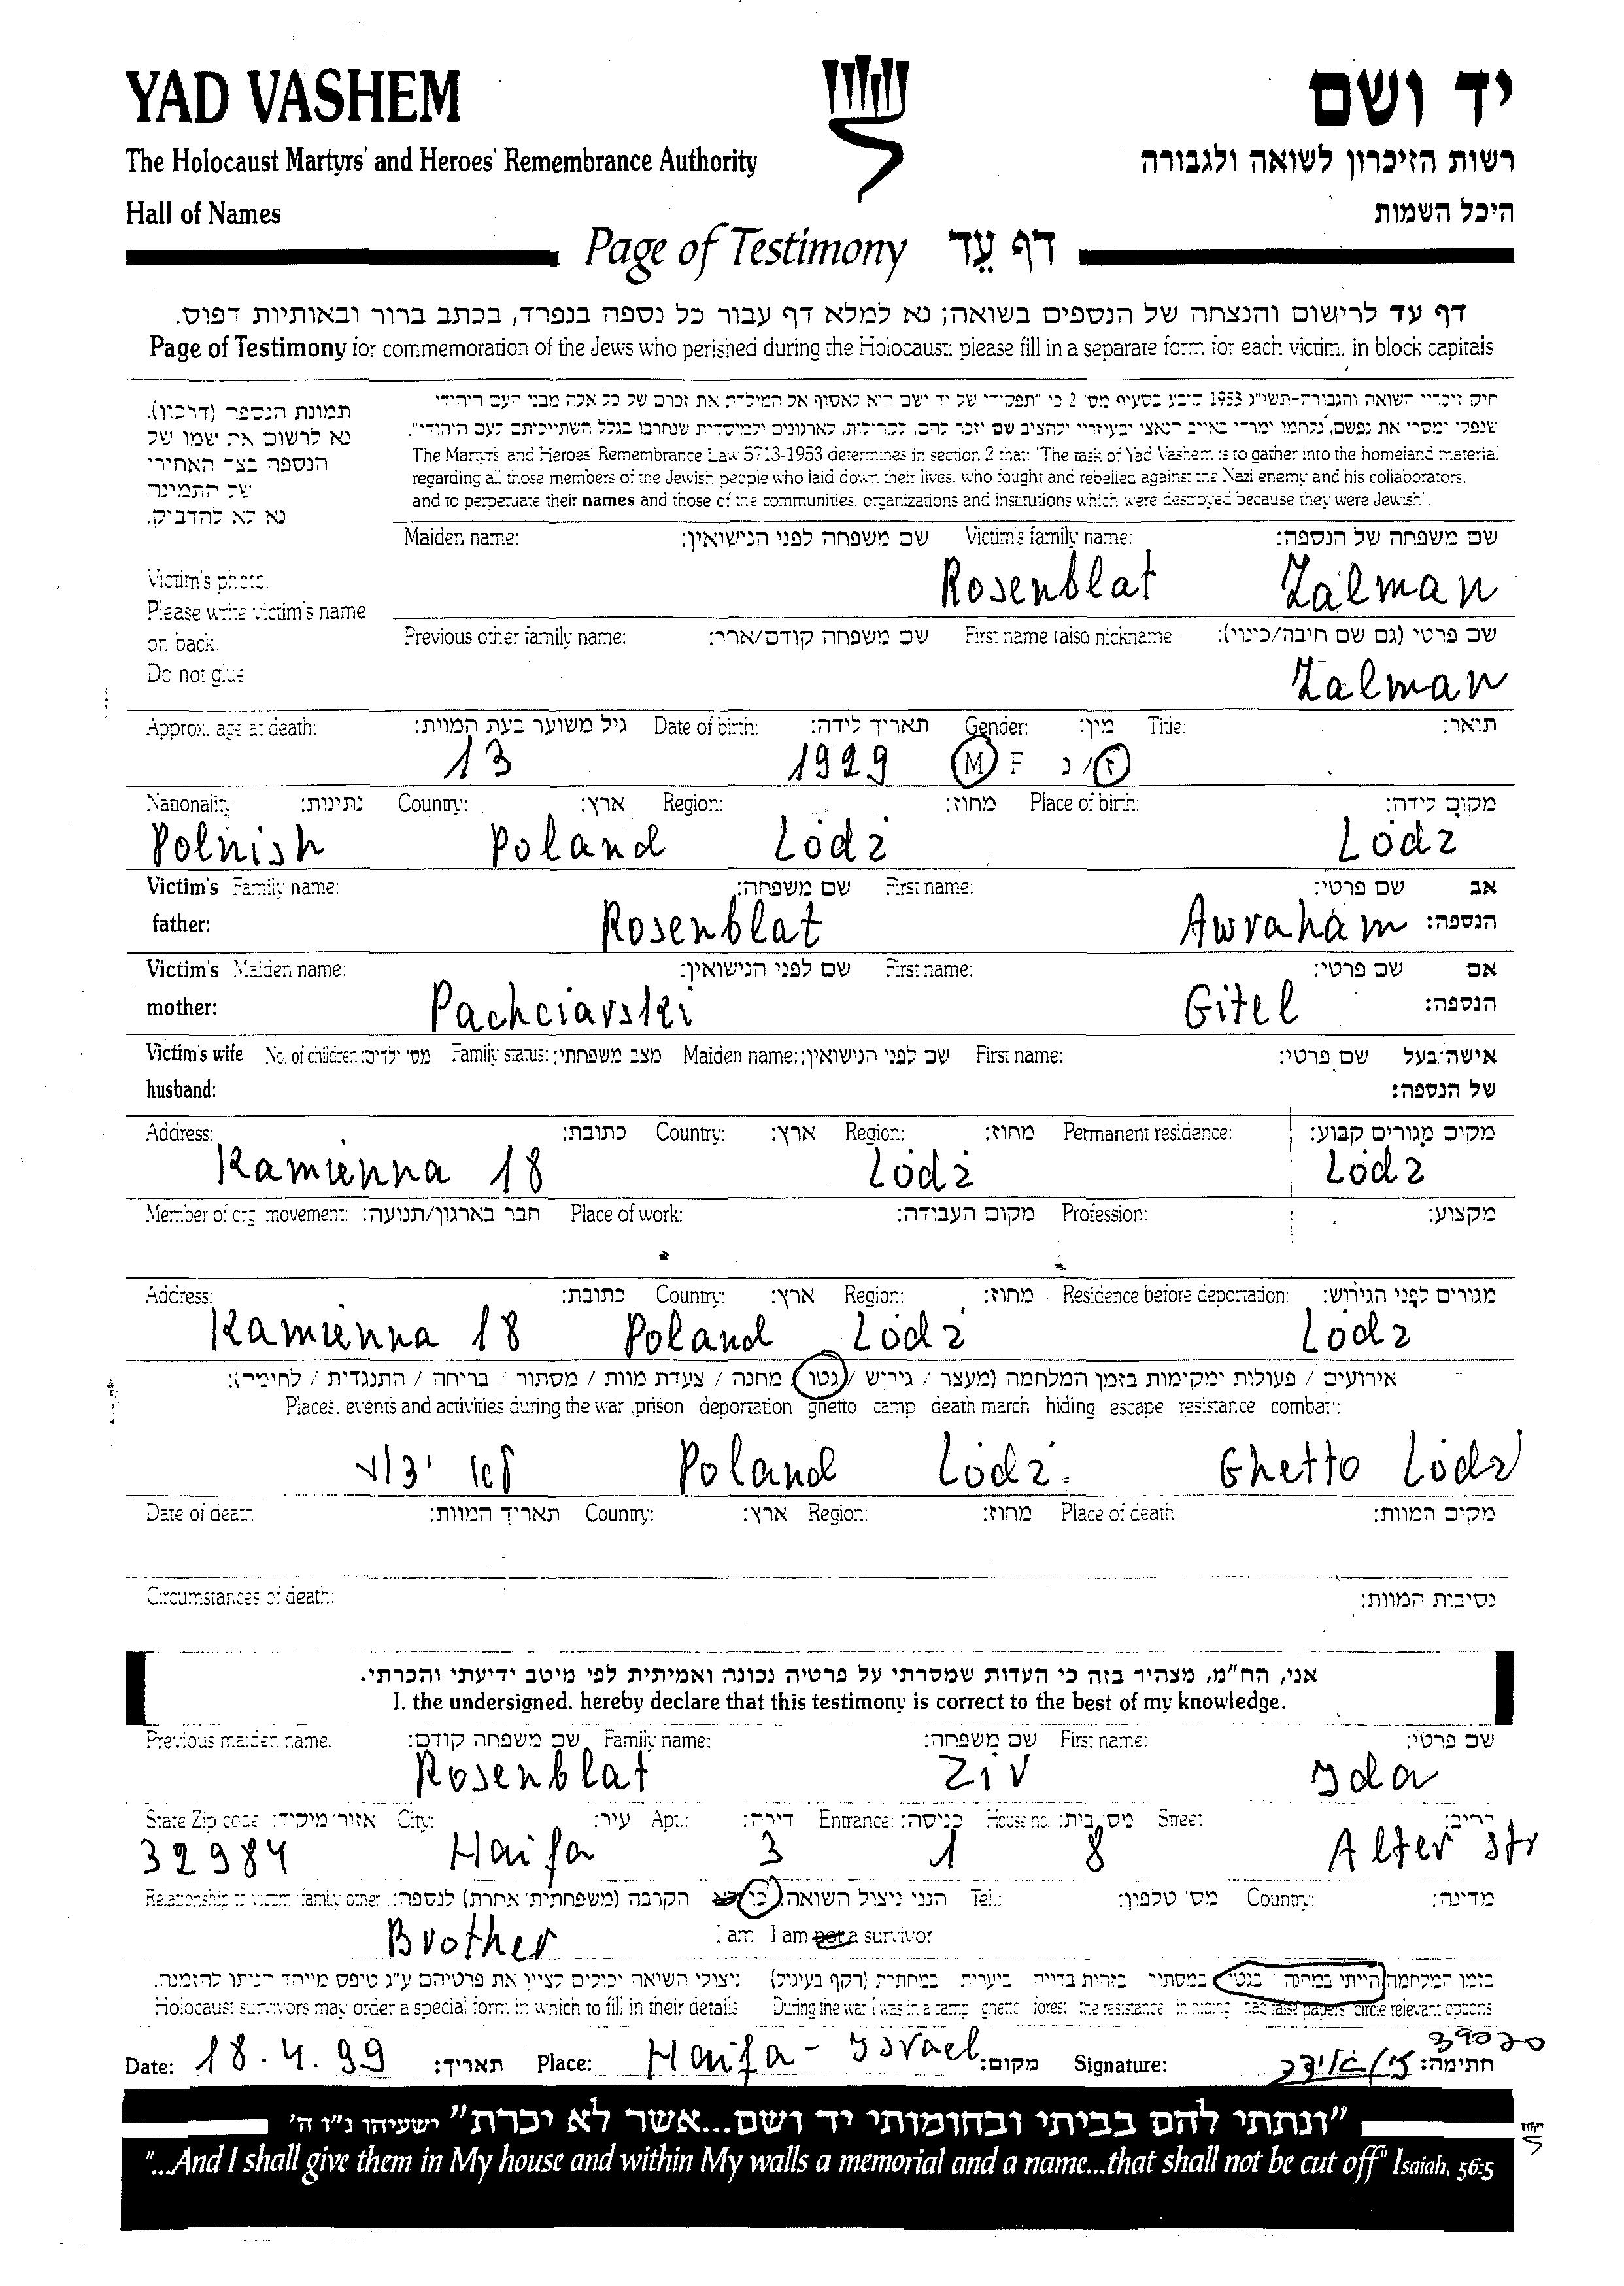 YAD VASHEM
יד ושם
The Holocaust Martyrs' and Heroes' Remembrance Authority
רשות הזיכרון לשואה ולגבורה
Hall of Names
היכל השמות
Page of Testimony דף עֵד
דף עד לרישום והנצחה של הנספים בשואה; נא למלא דף עבור כל נספה בנפרד, בכתב ברור ובאותיות דפוס.
Page of Testimony for commemoration of the Jews who perished during the Holocaust: please fill in a separate form for each victim, in block capitals
תמונת הנספה (דרכון).
נא לרשום את שמו של
הנספה בצד האחורי
של התמונה
נא לא להדביק.
Victim's photo.
Please write victim's name
on back.
Do not glue
חוק זיכרון השואה והגבורה-תשי"ג 1953 קובע בסעיף מס' 2 כי "תפקידו של יד ושם הוא לאסוף אל המולדת את זכרם של כל אלה מבני העם היהודי
שנפלו ומסרו את נפשם, נלחמו ומרדו באויב הנאצי ובעוזריו ולהציב שם וזכר להם, לקהילות, לארגונים ולמוסדות שנחרבו בגלל השתייכותם לעם היהודי".
The Martyrs and Heroes Remembrance Law 5713-1953 determines in section 2 that: "The task of Yad Vashem is to gather into the homeland material
regarding all those members of the Jewish people who laid down their lives, who fought and rebelled against the Nazi enemy and his collaborators,
and to perpetuate their names and those of the communities, organizations and institutions which were destroyed because they were Jewish".
Maiden name: שם משפחה לפני הנישואין: Victim's family name: שם משפחה של הנספה:
Rosenblat Zalman
Previous other family name: שם משפחה קודם/אחר: First name (also nickname שם פרטי (גם שם חיבה/כינוי):
Zalman
Approx. age at death: גיל משוער בעת המוות: Date of birth: תאריך לידה: Gender: מין: Title: תואר:
13 1929 M F ז/נ
Nationality נתינות: Country: ארץ: Region: מחוז: Place of birth: מקום לידה:
Polnish Poland Lódź Lódź
Victim's Family name: שם משפחה: First name: שם פרטי: אב
father: Rosenblat Awraham הנספה:
Victim's Maiden name: שם לפני הנישואין: First name: שם פרטי: אם
mother: Pachciarski Gitel הנספה:
Victim's wife No. of children: מס' ילדים: Family status: מצב משפחתי: Maiden name: שם לפני הנישואין: First name: שם פרטי: אישה/בעל
husband: של הנספה:
Address: כתובת: Country: ארץ: Region: מחוז: Permanent residence: מקום מגורים קבוע:
Kamienna 18 Lódź Lódź
Member of org movement: חבר בארגון/תנועה: Place of work: מקום העבודה: Profession: מקצוע:
Address: כתובת: Country: ארץ: Region: מחוז: Residence before deportation: מגורים לפני הגירוש:
Kamienna 18 Poland Lódź Lódź
אירועים / פעולות ומקומות בזמן המלחמה (מעצר / גירוש / גטו / מחנה / צעדת מוות / מסתור / בריחה / התנגדות / לחימה):
Places, events and activities during the war (prison deportation ghetto camp death march hiding escape resistance combat):
Poland Lódź Ghetto Lódź
Date of death תאריך המוות: Country: ארץ: Region: מחוז: Place of death: מקום המוות:
Circumstances of death: נסיבות המוות:
אני, הח"מ, מצהיר בזה כי העדות שמסרתי על פרטיה נכונה ואמיתית לפי מיטב ידיעתי והכרתי.
I, the undersigned, hereby declare that this testimony is correct to the best of my knowledge.
Previous maiden name. שם משפחה קודם: Family name: שם משפחה: First name: שם פרטי:
Rosenblat Ziv Ida
State Zip code אזור מיקוד: City: עיר: Apt.: דירה: Entrance: כניסה: House no.: מס' בית: Street רחוב:
32984 Haifa 3 1 8 Alter str
Relationship to victim family other: הקרבה (משפחתית אחרת) לנספה: הנני ניצול השואה: כן Tel.: מס' טלפון: Country: מדינה:
Brother I am I am not a survivor
בזמן המלחמה הייתי במחנה בגטו במסתור בזהות בדויה ביערות במחתרת (הקף בעיגול) ניצולי השואה יכולים לציין את פרטיהם ע"ג טופס מיוחד הניתן להזמנה.
Holocaust survivors may order a special form in which to fill in their details During the war I was in a camp ghetto forest the resistance in hiding had false papers (circle relevant options
39020
Date: 18.4.99 תאריך: Place: Haifa - Israel מקום: Signature: חתימה:
"ונתתי להם בביתי ובחומותי יד ושם...אשר לא יכרת" ישעיהו נ"ו ה'
"...And I shall give them in My house and within My walls a memorial and a name...that shall not be cut off" Isaiah, 56:5